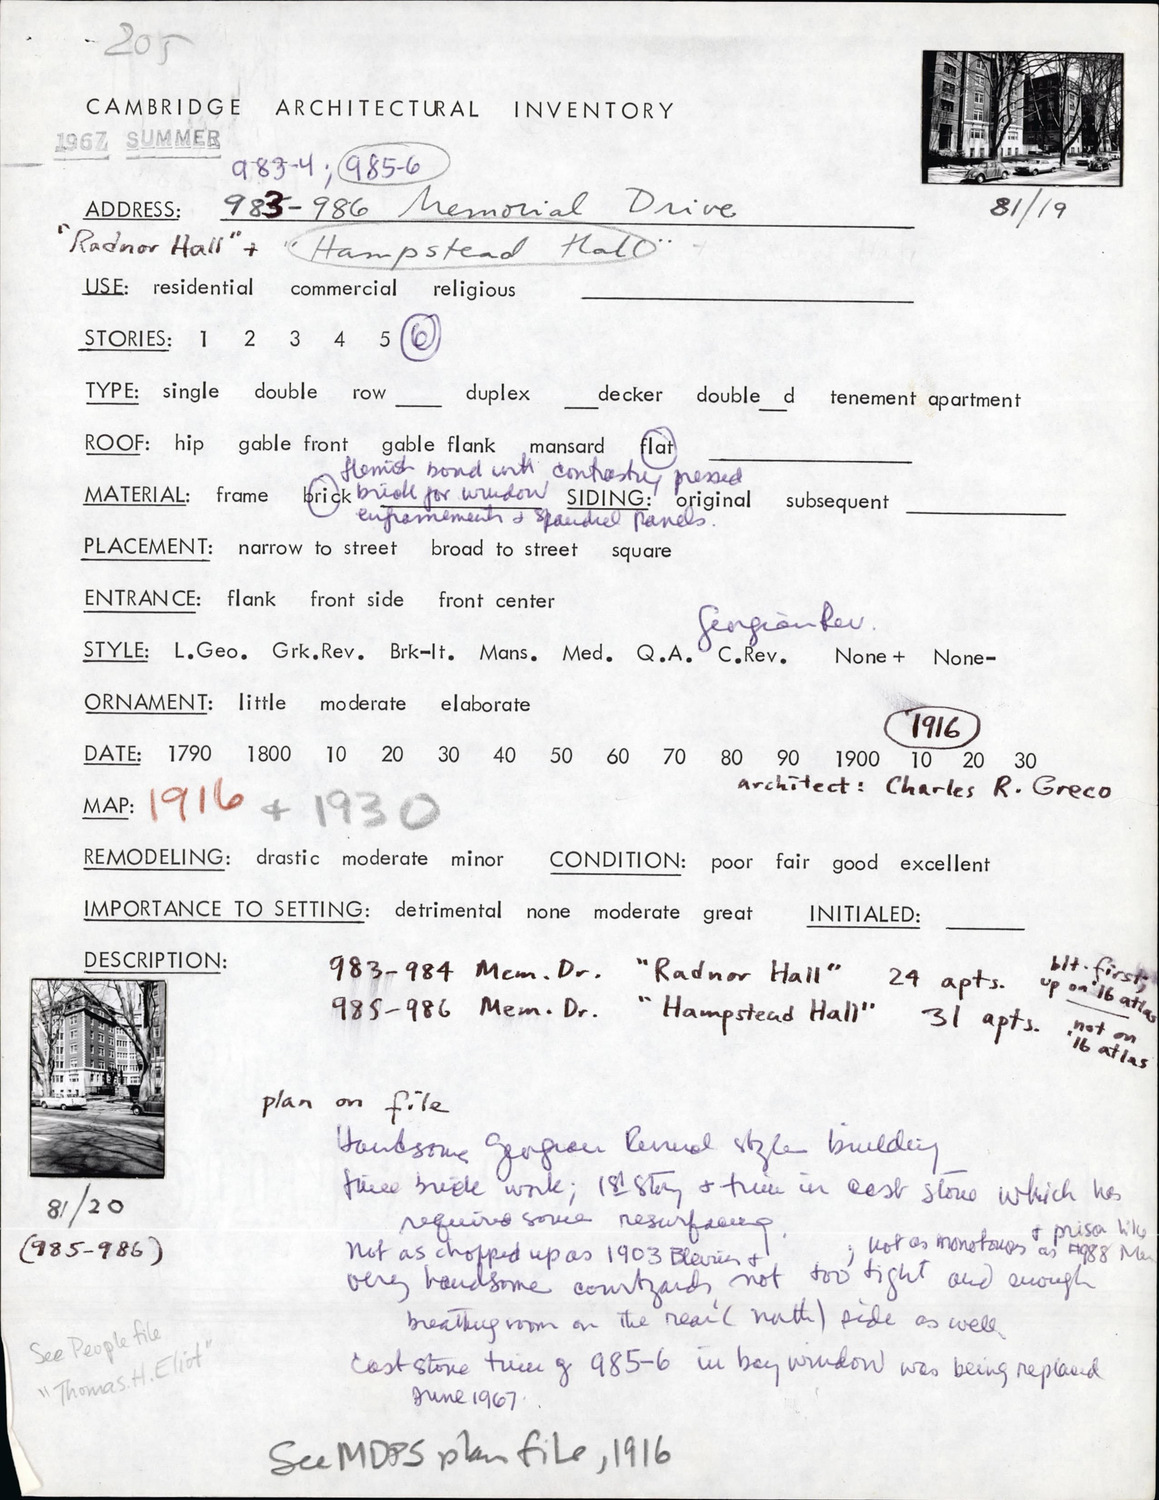 205
CAMBRIDGE ARCHITECTURAL INVENTORY
1967 SUMMER
983-4; 985-6
ADDRESS: 983-986 Memorial Drive
81/19
"Radnor Hall" + "Hampstead Hall"
USE: residential commercial religious
STORIES: 1 2 3 4 5 6
TYPE: single double row ___ duplex ___decker double__d tenement apartment
ROOF: hip gable front gable flank mansard flat
Flemish bond with contrasting pressed
MATERIAL: frame brick brick for window SIDING: original subsequent
enframements + spandrel panels.
PLACEMENT: narrow to street broad to street square
ENTRANCE: flank front side front center
Georgian Rev.
STYLE: L.Geo. Grk.Rev. Brk-It. Mans. Med. Q.A. C.Rev. None+ None-
ORNAMENT: little moderate elaborate
1916
DATE: 1790 1800 10 20 30 40 50 60 70 80 90 1900 10 20 30
architect: Charles R. Greco
MAP: 1916 + 1930
REMODELING: drastic moderate minor CONDITION: poor fair good excellent
IMPORTANCE TO SETTING: detrimental none moderate great INITIALED:
DESCRIPTION:
983-984 Mem. Dr. "Radnor Hall" 24 apts. blt. first; up on '16 atlas
985-986 Mem. Dr. "Hampstead Hall" 31 apts. not on '16 atlas
plan on file
Handsome Georgian Revival style building
fine brick work; 1st Story + trim in cast stone which has
required some resurfacing.
Not as chopped up as 1903 +; not as monotonous + prison like as 988 Mem
very handsome courtyards not too tight and enough
breathing room on the rear (north) side as well.
Cast stone trim of 985-6 in bay window was being replaced
June 1967.
81/20
(985-986)
See People file
"Thomas. H. Eliot"
See MDPS plan file, 1916